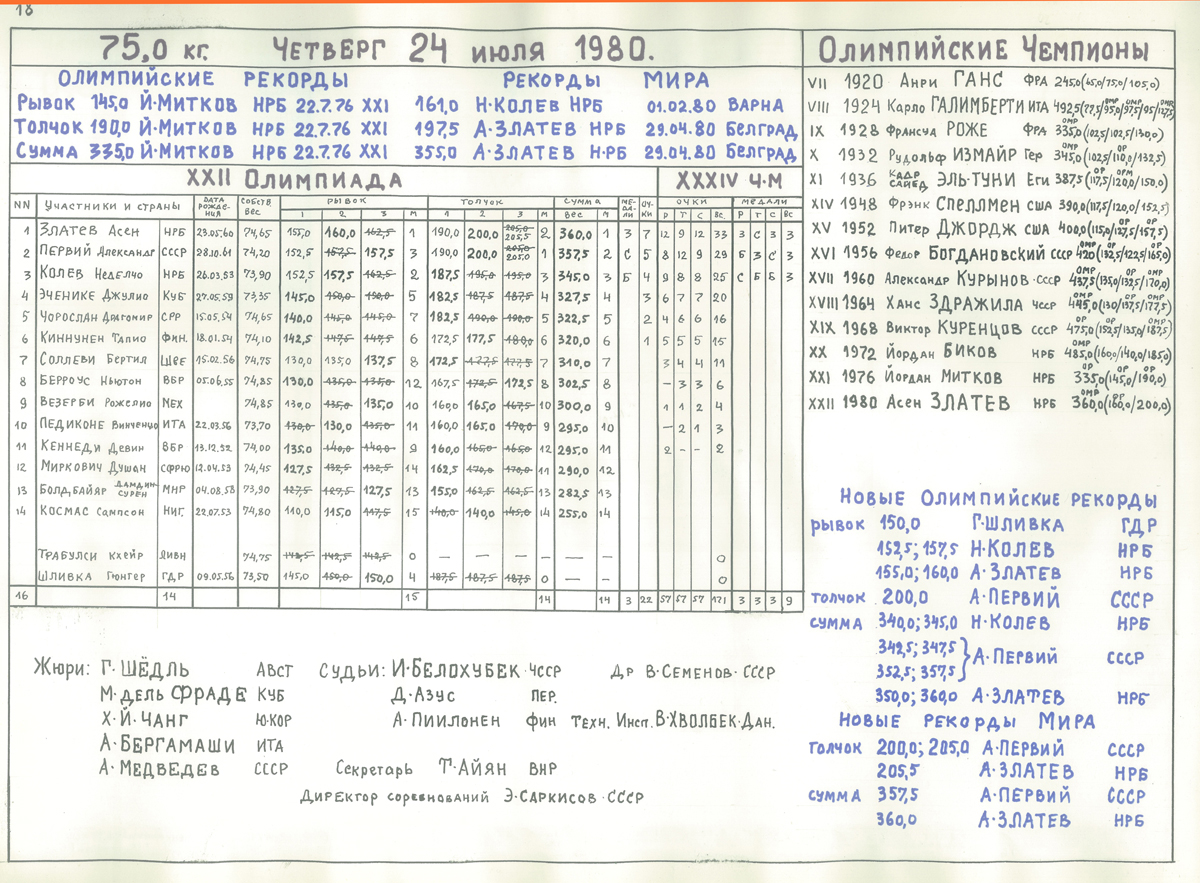 18
75,0 кг. Четверг 24 июля 1980.
Олимпийские рекорды Рекорды Мира
Рывок 145,0 Й·Митков НРБ 22.7.76 XXI 161,0 Н·Колев НРБ 01.02.80 Варна
Толчок 190,0 Й·Митков НРБ 22.7.76 XXI 197,5 А·Златев НРБ 29.04.80 Белград
Сумма 335,0 Й·Митков НРБ 22.7.76 XXI 355,0 А·Златев НРБ 29.04.80 Белград
XXII Олимпиада XXXIV Ч·М
NN Участники и страны Дата рождения Собств вес Рывок Толчок Сумма Медали Очки Очки Медали
1 2 3 М 1 2 3 М вес М Р Т С Вс. Р Т С Вс
1 Златев Асен НРБ 23.05.60 74,65 155,0 160,0 162,5 1 190,0 200,0 205,0 205,5 2 360,0 1 З 7 12 9 12 33 З С З 3
2 Первий Александр СССР 28.10.61 74,20 152,5 157,5 157,5 3 190,0 200,0 205,0 205,5 1 357,5 2 С 5 8 12 9 29 Б З С 3
3 Колев Неделчо НРБ 26.03.53 73,90 152,5 157,5 162,5 2 187,5 195,0 195,0 3 345,0 3 Б 4 9 8 8 25 С Б Б 3
4 Эченике Джулио КУБ 27.05.59 73,35 145,0 150,0 150,0 5 182,5 187,5 187,5 4 327,5 4 3 6 7 7 20
5 Чорослан Драгомир СРР 15.05.54 74,65 140,0 145,0 145,0 7 182,5 190,0 190,0 5 322,5 5 2 4 6 6 16
6 Киннунен Тапио Фин. 18.01.54 74,10 142,5 147,5 147,5 6 172,5 177,5 180,0 6 320,0 6 1 5 5 5 15
7 Соллеви Бертил Шве 15.02.56 74,75 130,0 135,0 137,5 8 172,5 177,5 177,5 7 310,0 7 3 4 4 11
8 Берроус Ньютон ВБР 05.06.55 74,85 130,0 135,0 135,0 12 167,5 172,5 172,5 8 302,5 8 – 3 3 6
9 Везерби Рожелио МЕХ 74,85 130,0 135,0 135,0 10 160,0 165,0 167,5 10 300,0 9 1 1 2 4
10 Педиконе Винченцо ИТА 22.03.56 73,70 130,0 130,0 135,0 11 160,0 165,0 170,0 9 295,0 10 – 2 1 3
11 Кеннеди Девин ВБР 13.12.52 74,00 135,0 140,0 140,0 9 160,0 165,0 165,0 12 295,0 11 2 – – 2
12 Миркович Душан СФРЮ 12.04.53 74,45 127,5 132,5 132,5 14 162,5 170,0 170,0 11 290,0 12
13 Болдбайяр Дамдинсурен МНР 04.08.58 73,90 127,5 127,5 127,5 13 155,0 162,5 162,5 13 282,5 13
14 Космас Сампсон НИГ. 22.07.53 74,80 110,0 115,0 117,5 15 140,0 140,0 145,0 14 255,0 14
Трабулси Кхейр Ливн 74,75 142,5 142,5 142,5 0 – – – – – – 0
Шливка Гюнтер ГДР 09.05.56 73,50 145,0 150,0 150,0 4 187,5 187,5 187,5 0 – – 0
16 14 15 14 14 3 22 57 57 57 171 3 3 3 9
Жюри: Г·Шёдль Авст Судьи: И·Белохубек·ЧССР Др В·Семенов·СССР
М·дель Фраде КУБ Д·Азус ПЕР.
Х·Й·Чанг Ю·Кор А·Пиилонен Фин Техн. Инсп. В·Хволбек·Дан.
А·Бергамаши ИТА
А·Медведев СССР Секретарь Т·Айян ВНР
Директор соревнований Э·Саркисов·СССР
Олимпийские Чемпионы
VII 1920 Анри Ганс ФРА 245,0(45,0/75,0/105,0)
VIII 1924 Карло Галимберти ИТА
IX 1928 Франсуа Роже ФРА ОМР 335,0(102,5/102,5/130,0)
X 1932 Рудольф Измайр Гер ОМР ОР 345,0(102,5/110,0/132,5)
XI 1936 Кадр Сайед Эль·Туни Еги ОР ОРМ 387,5(117,5/120,0/150,0)
XIV 1948 Фрэнк Спеллмен США 390,0(117,5/120,0/152,5)
XV 1952 Питер Джордж США ОР ОР 400,0(115,0/127,5/157,5)
XVI 1956 Федор Богдановский СССР ОМР ОР ОР 420(132,5/122,5/165,0)
XVII 1960 Александр Курынов·СССР ОМР ОР ОМР 437,5(135,0/132,5/170,0)
XVIII 1964 Ханс Здражила ЧССР ОМР ОР ОМР 445,0(130/137,5/177,5)
XIX 1968 Виктор Куренцов СССР ОР ОМР 475,0(152,5/135,0/187,5)
XX 1972 Йордан Биков НРБ ОМР 485,0(160,0/140,0/185,0)
XXI 1976 Йордан Митков НРБ ОР ОР 335,0(145,0/190,0)
XXII 1980 Асен Златев НРБ ОМР ОР 360,0(160,0/200,0)
Новые Олимпийские рекорды
рывок 150,0 Г·Шливка ГДР
152,5; 157,5 Н·Колев НРБ
155,0; 160,0 А·Златев НРБ
толчок 200,0 А·Первий СССР
сумма 340,0; 345,0 Н·Колев НРБ
342,5; 347,5
352,5; 357,5 А·Первий СССР
350,0; 360,0 А·Златев НРБ
Новые рекорды Мира
толчок 200,0; 205,0 А·Первий СССР
205,5 А·Златев НРБ
сумма 357,5 А·Первий СССР
360,0 А·Златев НРБ